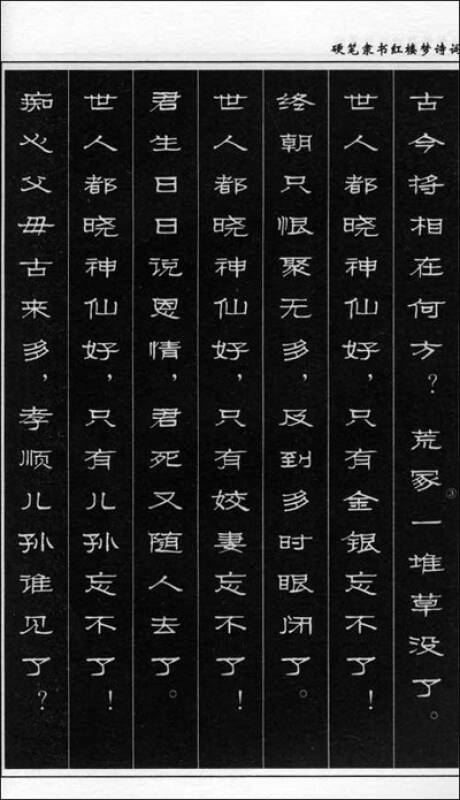 硬笔隶书红楼梦诗词
古今将相在何方？荒冢一堆草没了。③
世人都晓神仙好，只有金银忘不了！
终朝只恨聚无多，及到多时眼闭了。
世人都晓神仙好，只有姣妻忘不了！
君生日日说恩情，君死又随人去了。
世人都晓神仙好，只有儿孙忘不了！
痴心父母古来多，孝顺儿孙谁见了？